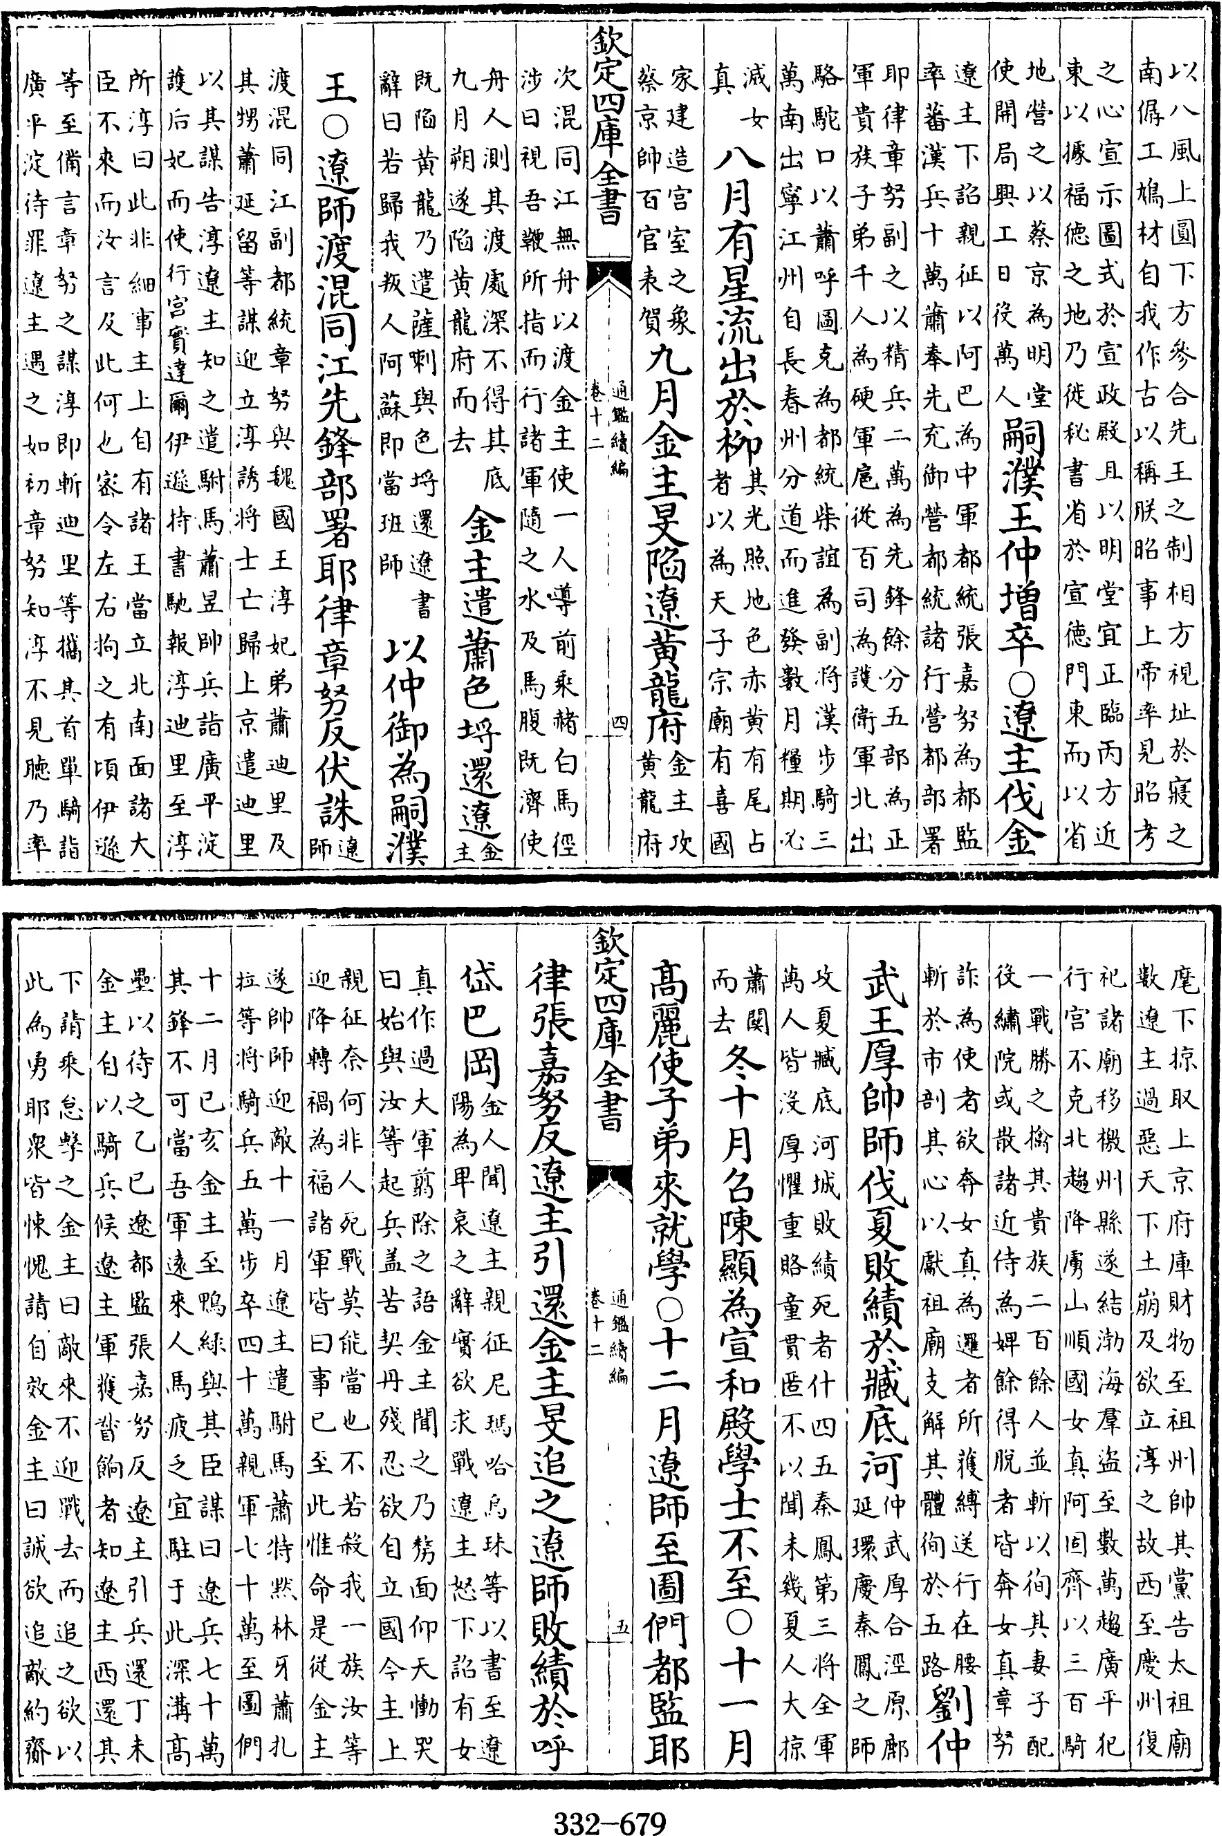 以八風上圓下方參合先王之制相方視址於寢之
南僝工鳩材自我作古以稱朕昭事上帝率見昭考
之心宣示圖式於宣政殿且以明堂宜正臨丙方近
東以據福德之地乃徙秘書省於宣德門東而以省
地營之以蔡京為明堂
使開局興工日役萬人
嗣濮王仲增卒○遼主伐金
遼主下詔親征以阿巴為中軍都統張嘉努為都監
率蕃漢兵十萬蕭奉先充御營都統諸行營都部署
耶律章努副之以精兵二萬為先鋒餘分五部為正
軍貴族子弟千人為硬軍扈從百司為護衛軍北出
駱駝口以蕭呼圖克為都統柴誼為副將漢步騎三
萬南出寧江州自長春州分道而進發數月糧期必
滅女
真
八月有星流出於栁
其光照地色赤黄有尾占
者以為天子宗廟有喜國
家建造宮室之象
蔡京帥百官表賀
九月金主旻陷遼黄龍府
金主攻
黄龍府
欽定四庫全書
通鑑續編
卷十二
四
次混同江無舟以渡金主使一人導前乘赭白馬徑
涉曰視吾鞭所指而行諸軍隨之水及馬腹既濟使
舟人測其渡處深不得其底
九月朔遂陷黄龍府而去
金主遣蕭色埒還遼
金
主
既陷黄龍乃遣薩喇與色埒還遼書
辭曰若歸我叛人阿蘇即當班師
以仲御為嗣濮
王○遼師渡混同江先鋒部署耶律章努反伏誅
遼
師
渡混同江副都統章努與魏國王淳妃弟蕭迪里及
其甥蕭延留等謀迎立淳誘將士亡歸上京遣迪里
以其謀告淳遼主知之遣駙馬蕭昱帥兵詣廣平淀
護后妃而使行宮實達爾伊遜持書馳報淳迪里至淳
所淳曰此非細事主上自有諸王當立北南面諸大
臣不來而汝言及此何也密令左右拘之有頃伊遜
等至備言章努之謀淳即斬迪里等攜其首單騎詣
廣平淀待罪遼主遇之如初章努知淳不見聽乃率
麾下掠取上京府庫財物至祖州帥其黨告太祖廟
數遼主過惡天下土崩及欲立淳之故西至慶州復
祀諸廟移檄州縣遂結渤海羣盜至數萬趨廣平犯
行宮不克北趨降虜山順國女真阿固齊以三百騎
一戰勝之擒其貴族二百餘人並斬以徇其妻子配
役繡院或散諸近侍為婢餘得脫者皆奔女真章努
詐為使者欲奔女真為邏者所獲縛送行在腰
斬於市剖其心以獻祖廟支解其體徇於五路
劉仲
武王厚帥師伐夏敗績於臧底河
仲武厚合涇原鄜
延環慶秦鳳之師
攻夏臧底河城敗績死者什四五秦鳳第三將全軍
萬人皆沒厚懼重賂童貫匿不以聞未幾夏人大掠
蕭関
而去
冬十月召陳顯為宣和殿學士不至○十一月
高麗使子弟來就學○十二月遼師至圖們都監耶
欽定四庫全書
通鑑續編
卷十二
五
律張嘉努反遼主引還金主旻追之遼師敗績於呼
岱巴岡
金人聞遼主親征尼瑪哈烏珠等以書至遼
陽為卑哀之辭實欲求戰遼主怒下詔有女
真作過大軍翦除之語金主聞之乃剺面仰天慟哭
曰始與汝等起兵盖苦契丹殘忍欲自立國今主上
親征奈何非人死戰莫能當也不若殺我一族汝等
迎降轉禍為福諸軍皆曰事已至此惟命是從金主
遂帥師迎敵十一月遼主遣駙馬蕭特默林牙蕭扎
拉等將騎兵五萬步卒四十萬親軍七十萬至圖們
十二月己亥金主至鴨綠與其臣謀曰遼兵七十萬
其鋒不可當吾軍遠來人馬疲乏宜駐于此深溝高
壘以待之乙巳遼都監張嘉努反遼主引兵還丁未
金主自以騎兵候遼主軍獲督餉者知遼主西還其
下請乘怠擊之金主曰敵來不迎戰去而追之欲以
此為勇耶衆皆悚愧請自效金主曰誠欲追敵約齎
332-679